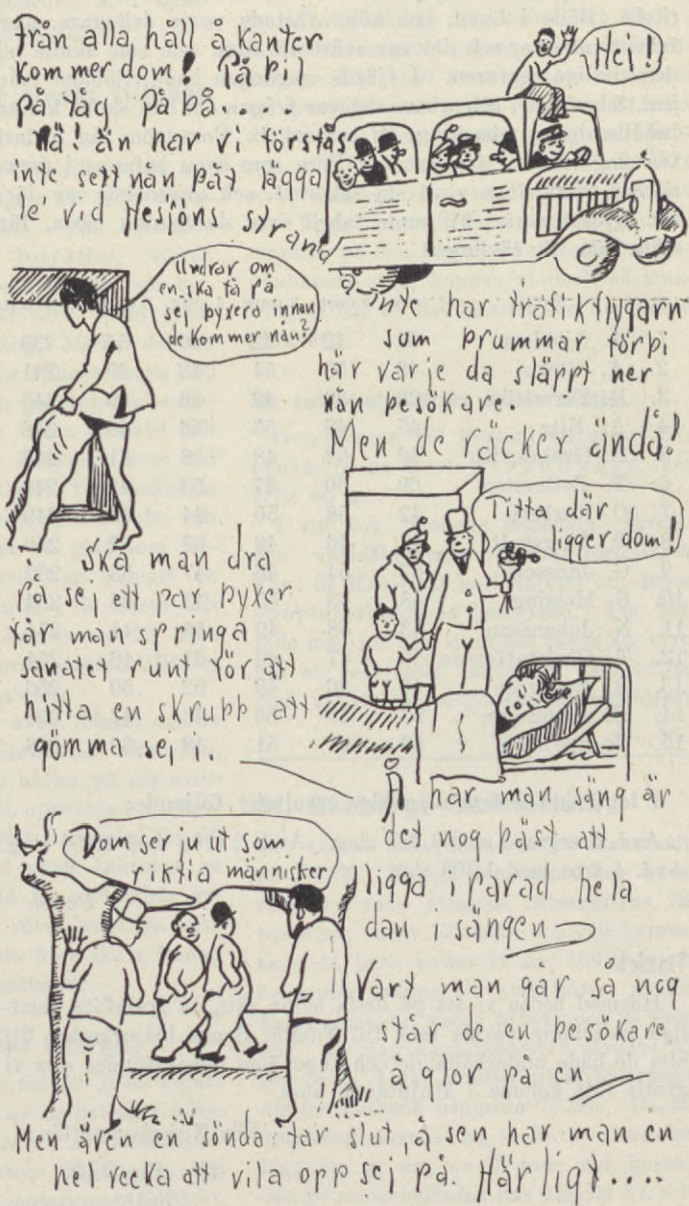 Från alla håll å kanter
kommer dom! På bil
på tåg på bå...
Nä! än har vi förstås
inte sett nån båt lägga
te' vid Hesjöns strand
Hej!
Undrar om
en ska få på
sej byxera innan
de kommer nån?
å inte har trafikflygarn
som brummar förbi
här varje da släppt ner
nån besökare.
Men de räcker ändå!
Titta där
ligger dom!
Ska man dra
på sej ett par byxer
får man springa
sanatet runt för att
hitta en skrubb att
gömma sej i.
Å har man säng är
det nog bäst att
ligga i parad hela
dan i sängen
Dom ser ju ut som
riktia människer
Vart man går så nog
står de en besökare
å glor på en
Men även en sönda tar slut, å sen har man en
hel vecka att vila opp sej på. Härligt....